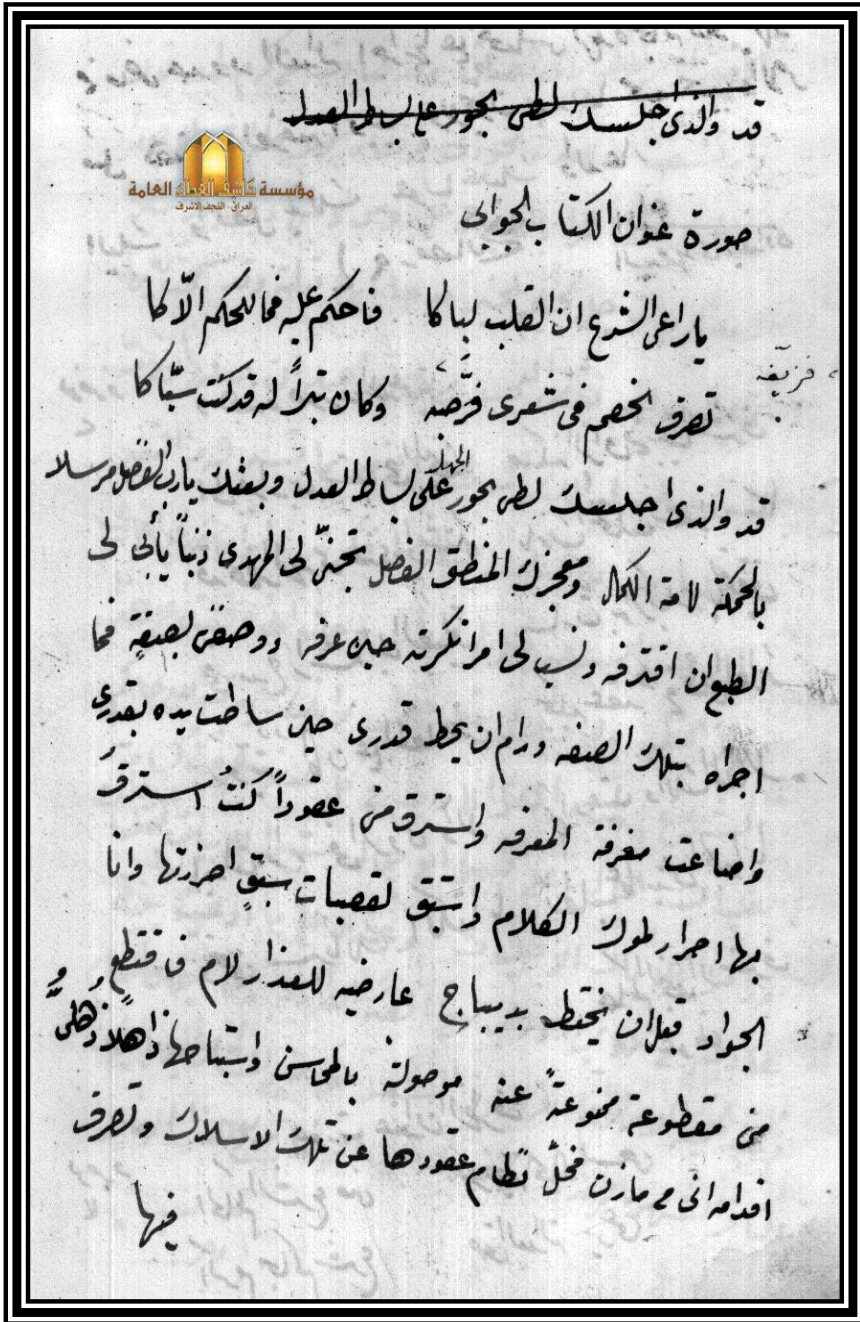 قد والذى اجلسك لطى بجور على بساط العدل
مؤسسة كاشف الغطاء العامة
العراق - النجف الأشرف
صورة عنوان الكتاب الجوابى
ياراعى الشرع ان القلب لباكا فاحكم عليه فما للحكم الّا كا
فزيفه
تصرف الخصم فى شعرى فرّضه وكان تبراً له قد كنت سبّاكا
الجهل
قد والذى اجلسك لطى بجور على بساط العدل وبعثك يارب الفضل مرسلا
بالحكمة لامة الكمال ومعجزك المنطق الفصل تجنّى لى المهدى ذنباً يأبى لى
الطبع ان اقترفه ونسب لى امرا نكرته حين عرفه ووصفنى بصفةٍ فما
اجراه بتلك الصفه ورام ان يحط قدرى حين ساطت يده بقدرى
واضاعت مغرفة المعرفه واسترق منى عقوداً كنتُ استرقُ
بها احرار ملوك الكلام واستبق لقصبات سبقٍ احرزتها وانا
الجواد قبل ان يختط بديباج عارضيه للعذار لام فاقتطع
منى مقطوعة ممنوعةً عنه موصولة بالمحاسن واستباحها ذاهلاً
اقدامه انى من مازن فحلّ نظام عقودها عن تلك الاسلاك وتصرف
فيها